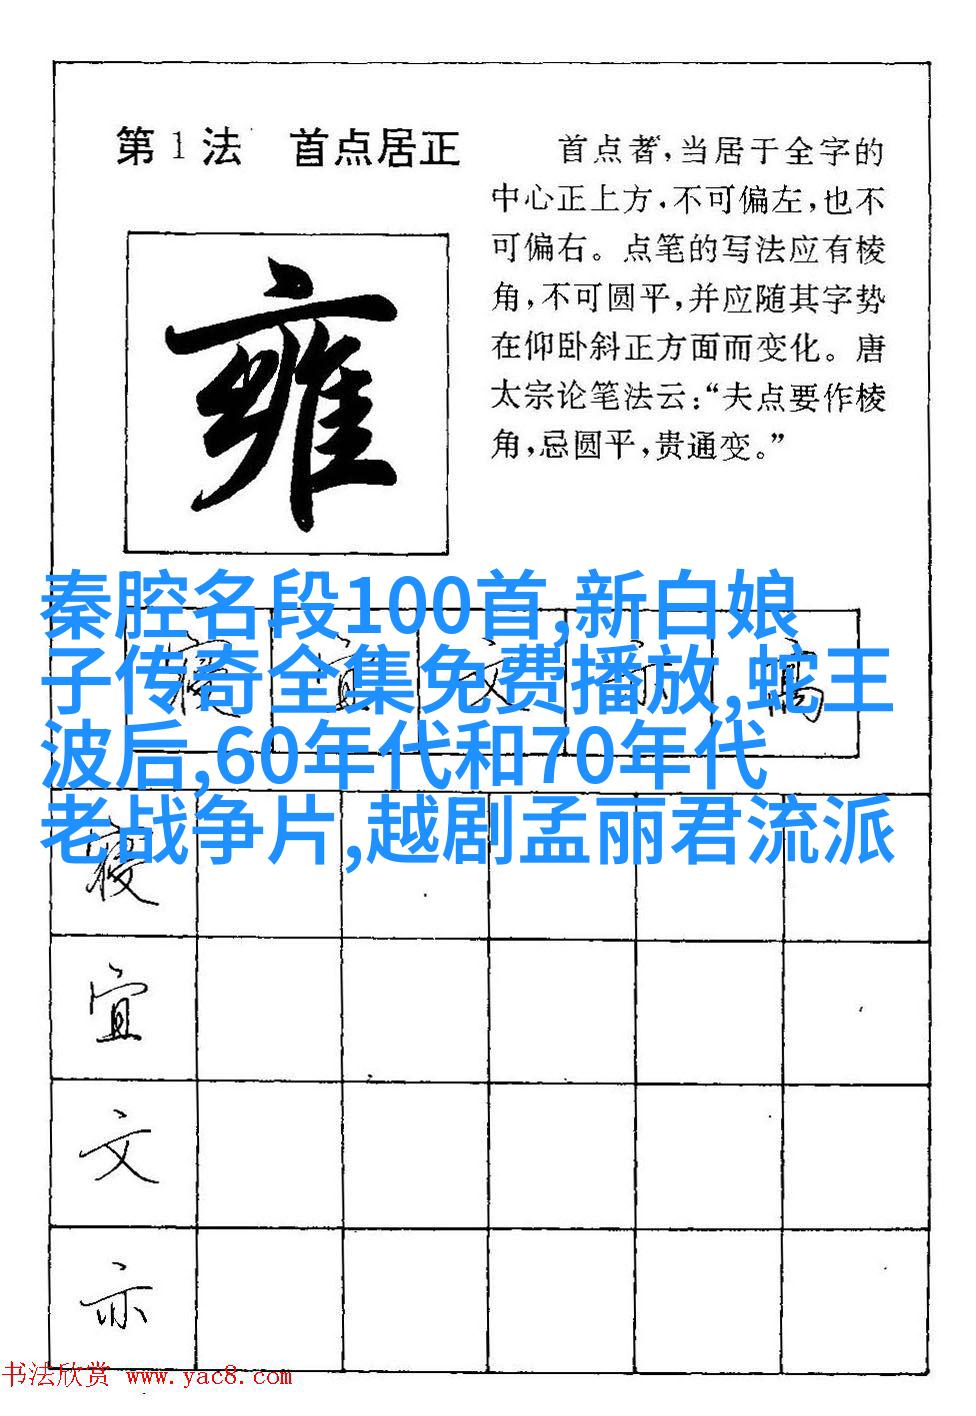 第1法 首点居正
首点者,当居于全字的
中心正上方,不可偏左,也不
可偏右。点笔的写法应有棱
角,不可圆平,并应随其字势
在仰卧斜正方面而变化。唐
太宗论笔法云:“夫点要作棱
角,忌圆平,贵通变。”
雍
秦腔名段100首,新白娘
子传奇全集免费播放,蛇王
波后,60年代和70年代
老战争片,越剧孟丽君流派
宜 文 亦
宜
文
亦
书法欣赏 www.yac8.com